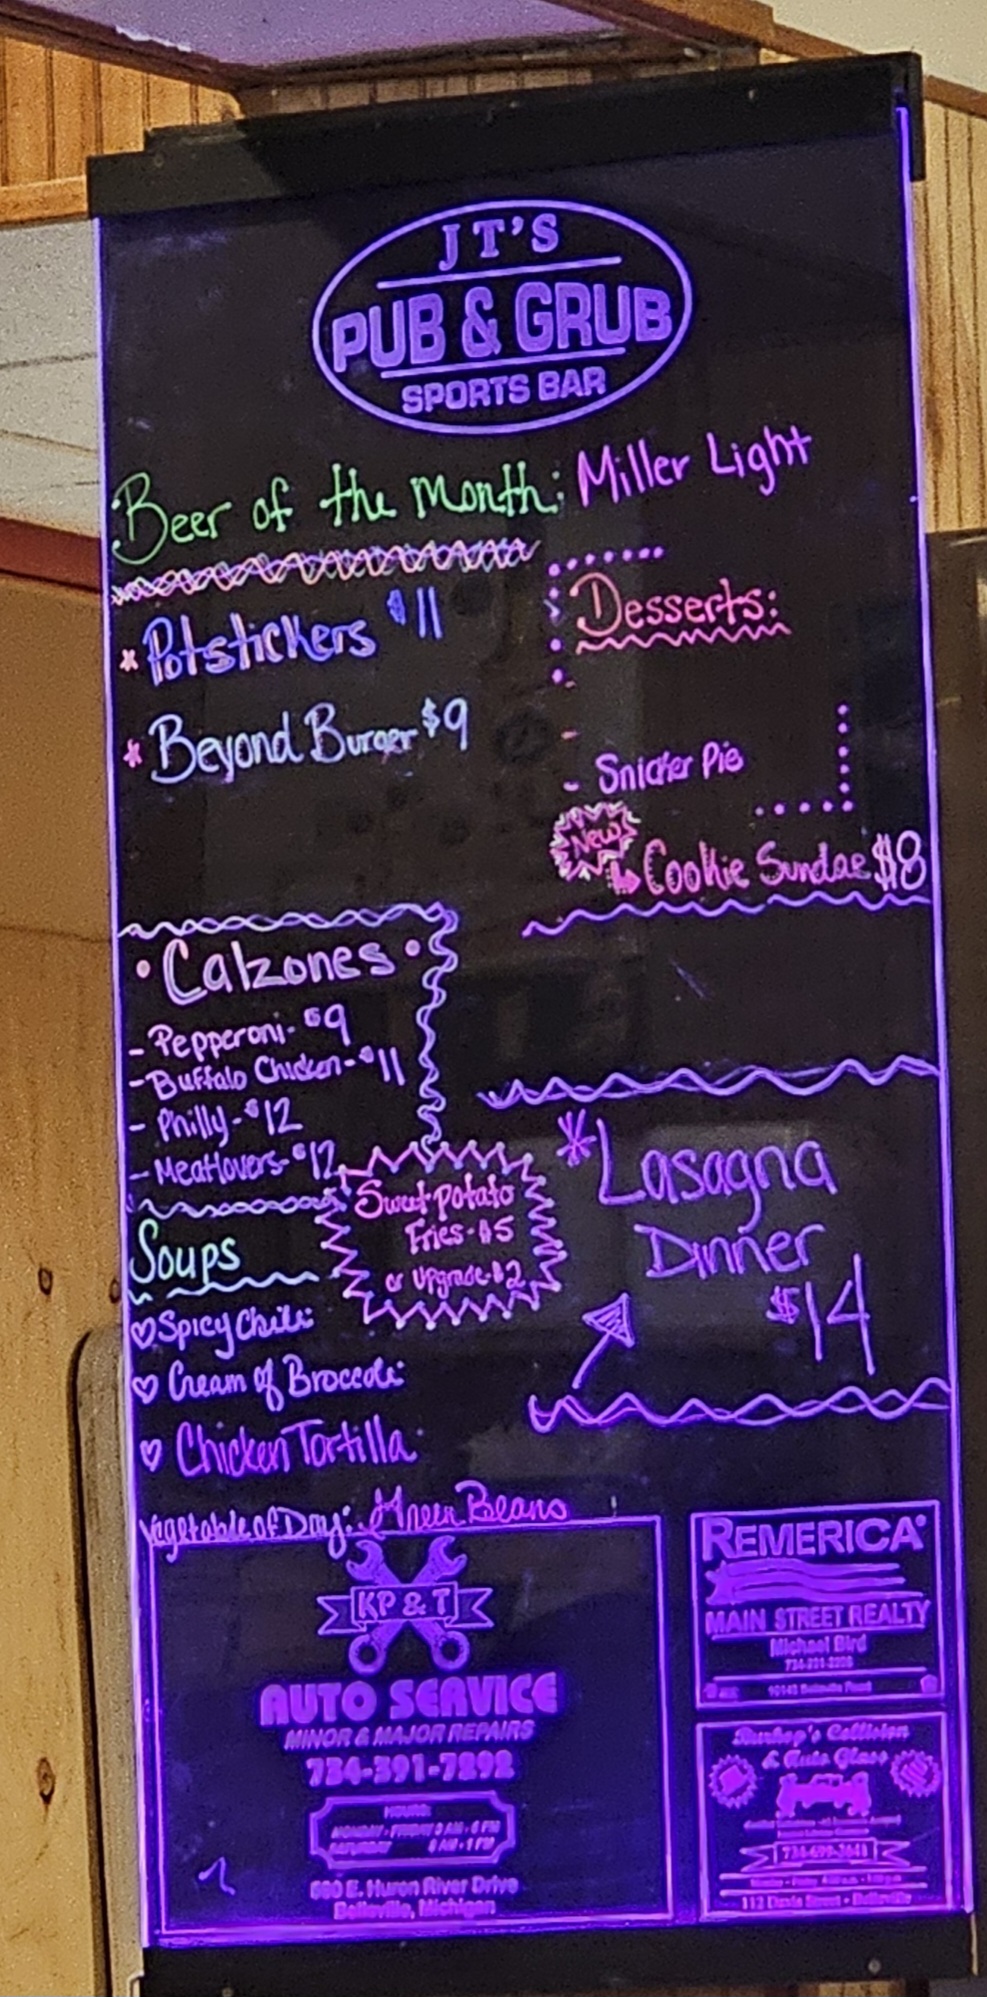 JT'S
PUB & GRUB
SPORTS BAR
Beer of the Month: Miller Light
* Potstickers $11
* Beyond Burger $9
Desserts:
-
-
- Snicker Pie
New!
Cookie Sundae $8
• Calzones •
- Pepperoni - $9
- Buffalo Chicken - $11
- Philly - $12
- Meatlovers - $12
Sweet potato
Fries - $5
or upgrade - $2
Soups
Spicy Chili
Cream of Broccoli
Chicken Tortilla
* Lasagna
Dinner
$14
Vegetable of Day: Green Beans
KP & T
AUTO SERVICE
MINOR & MAJOR REPAIRS
734-391-7292
HOURS:
MONDAY - FRIDAY 8 AM - 6 PM
SATURDAY 8 AM - 1 PM
E. Huron River Drive
Belleville, Michigan
REMERICA
MAIN STREET REALTY
Michael Bird
Collision
& Auto Glass
734-699-2641
Belleville